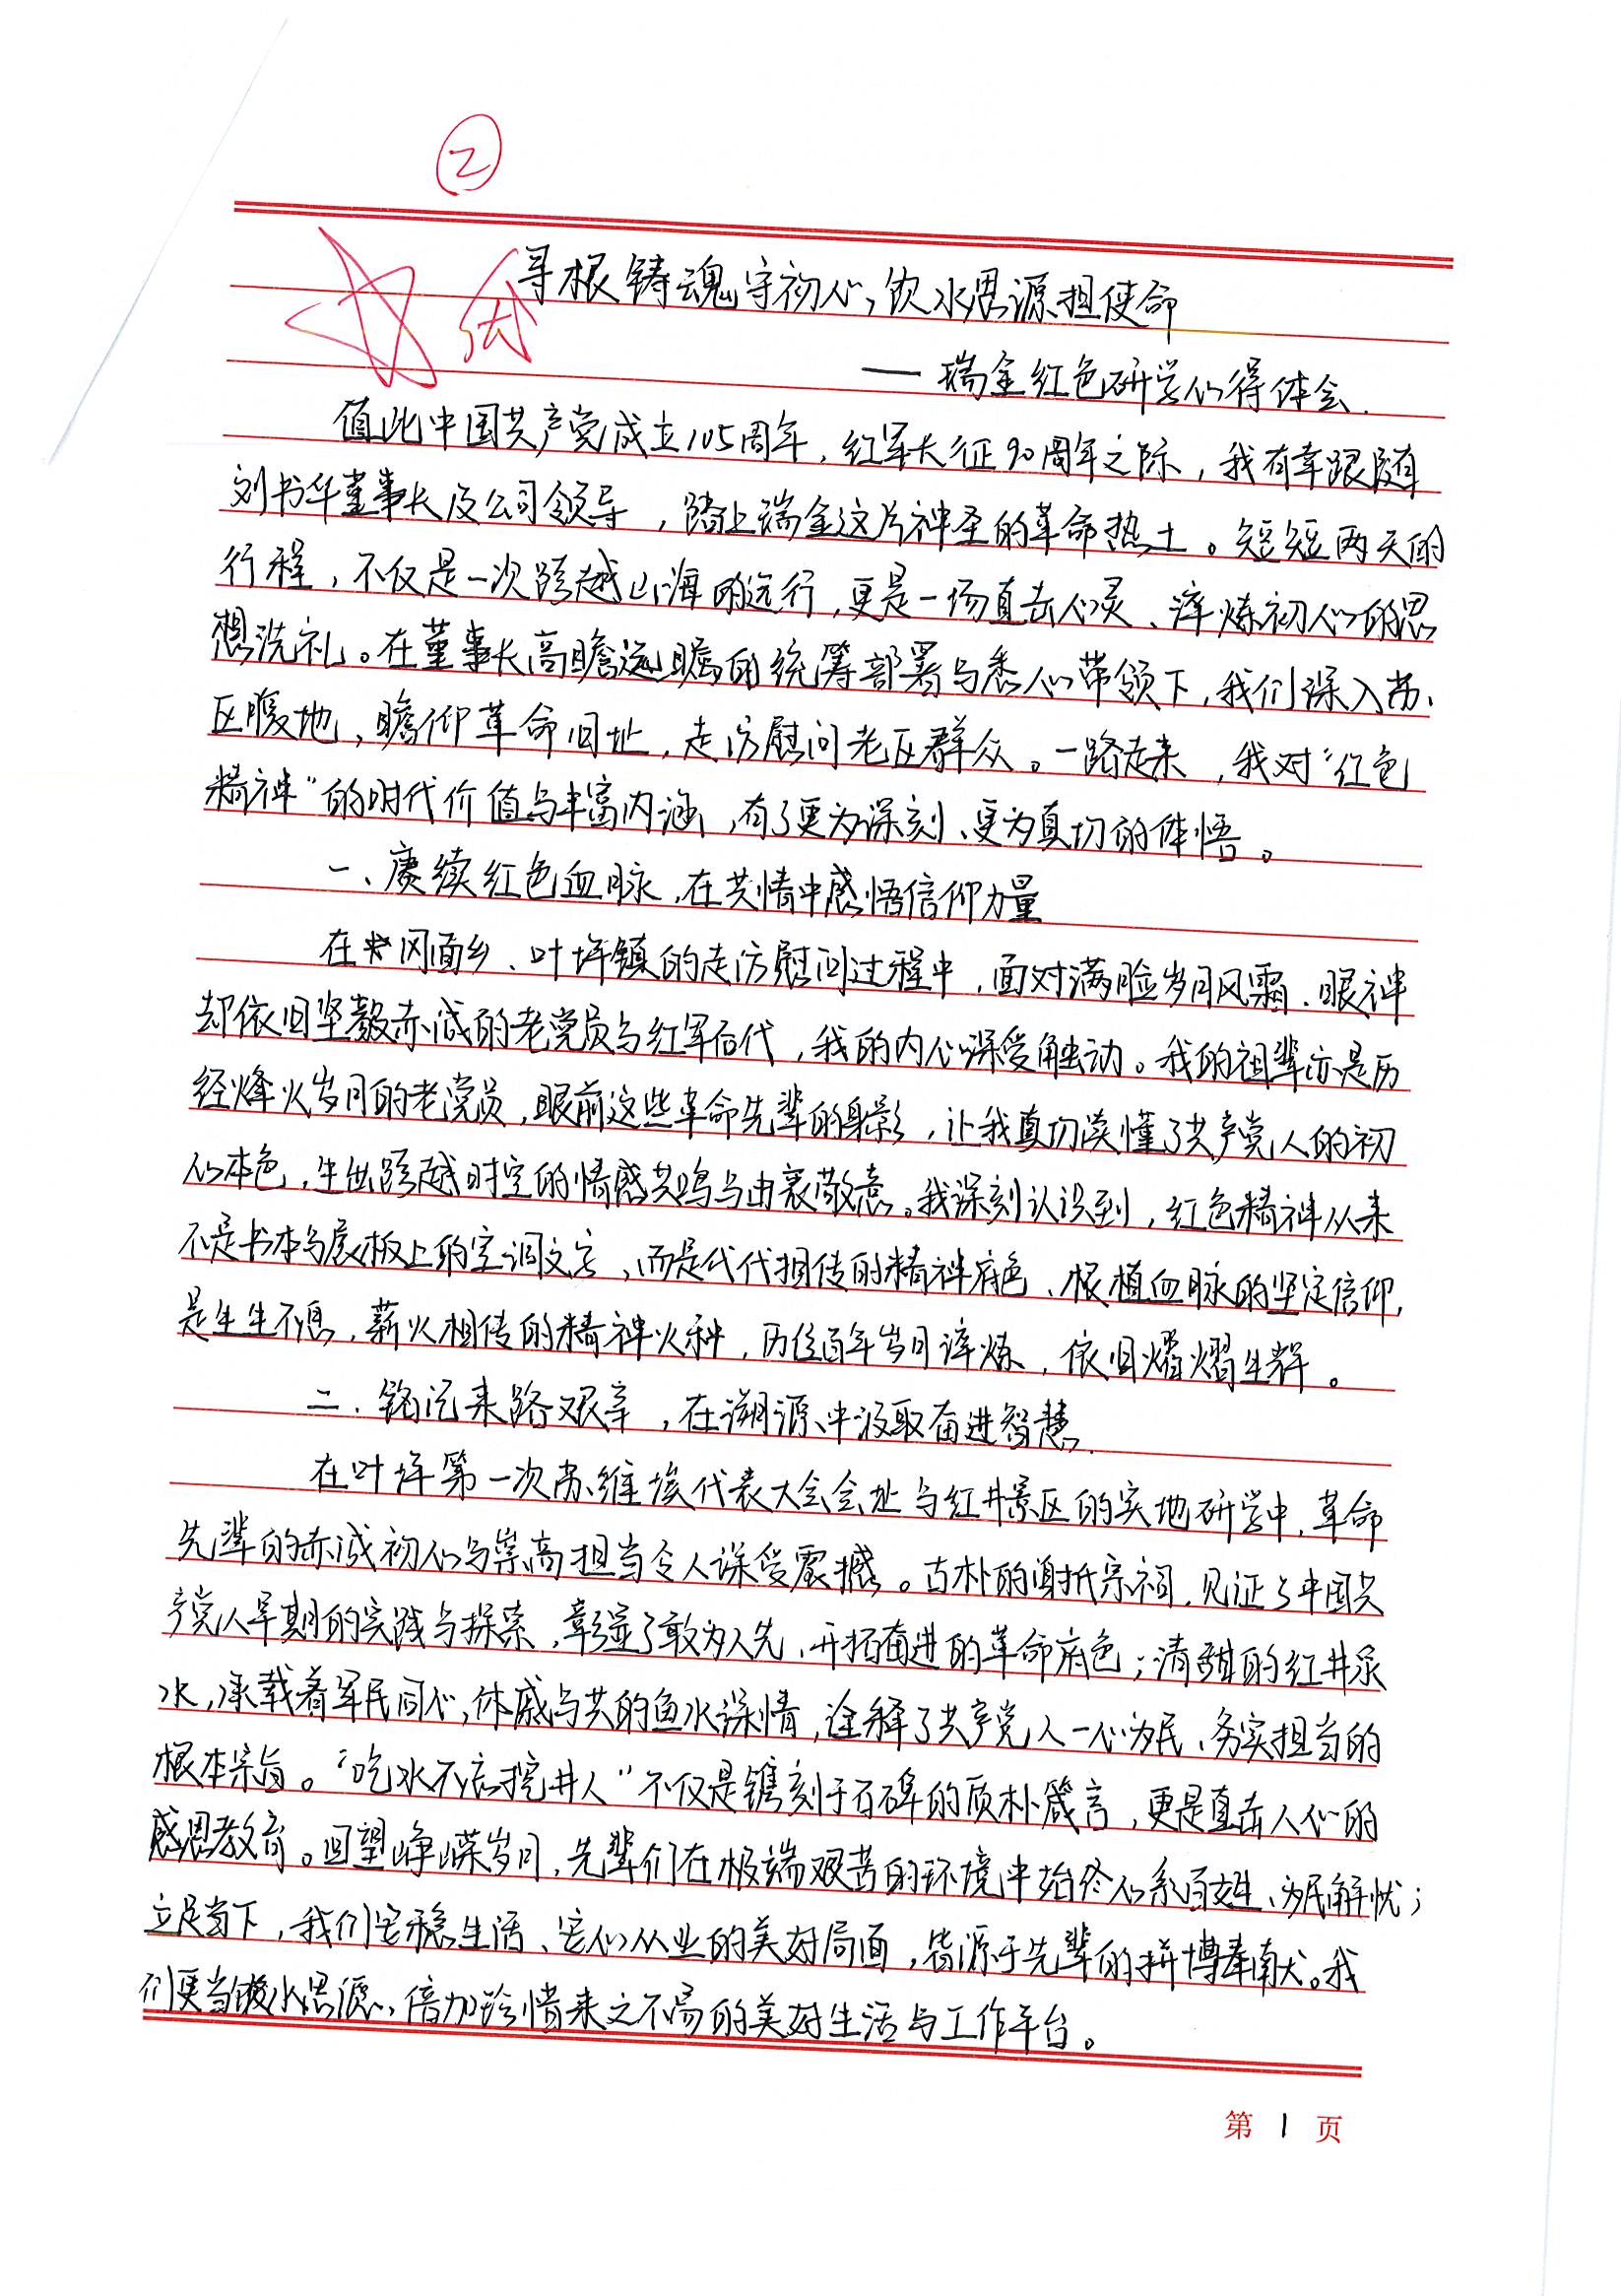 ②
寻根铸魂守初心，饮水思源担使命
——瑞金红色研学心得体会.
值此中国共产党成立105周年，红军长征90周年之际，我有幸跟随
刘书华董事长及公司领导，踏上瑞金这片神圣的革命热土。短短两天的
行程，不仅是一次跨越山海的远行，更是一场直击心灵、淬炼初心的思
想洗礼。在董事长高瞻远瞩的统筹部署与悉心带领下，我们深入苏
区腹地，瞻仰革命旧址，走访慰问老区群众。一路走来，我对“红色
精神”的时代价值与丰富内涵，有了更为深刻、更为真切的体悟。
一、赓续红色血脉，在共情中感悟信仰力量
在冈面乡、叶坪镇的走访慰问过程中，面对满脸岁月风霜、眼神
却依旧坚毅赤诚的老党员与红军后代，我的内心深受触动。我的祖辈亦是历
经烽火岁月的老党员，眼前这些革命先辈的身影，让我真切读懂了共产党人的初
心本色，生出跨越时空的情感共鸣与由衷敬意。我深刻认识到，红色精神从来
不是书本与展板上的空洞文字，而是代代相传的精神底色、根植血脉的坚定信仰，
是生生不息，薪火相传的精神火种，历经百年岁月淬炼，依旧熠熠生辉。
二、铭记来路艰辛，在溯源中汲取奋进智慧.
在叶坪第一次苏维埃代表大会会址与红井景区的实地研学中，革命
先辈的赤诚初心与崇高担当令人深受震撼。古朴的谢氏宗祠，见证了中国共
产党人早期的实践与探索，彰显了敢为人先、开拓奋进的革命底色；清甜的红井泉
水，承载着军民同心，休戚与共的鱼水深情，诠释了共产党人一心为民、务实担当的
根本宗旨。“吃水不忘挖井人”不仅是镌刻于石碑的质朴箴言，更是直击人心的
感恩教育。回望峥嵘岁月，先辈们在极端艰苦的环境中始终心系百姓、为民解忧；
立足当下，我们安稳生活、安心从业的美好局面，皆源于先辈的拼搏奉献。我
们更当饮水思源，倍加珍惜来之不易的美好生活与工作平台。
第 1 页